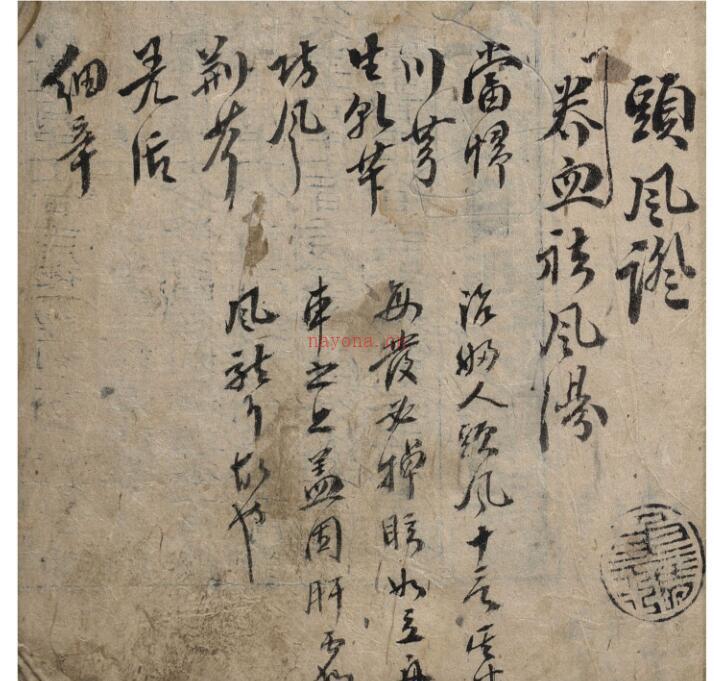 頭風證
養血祛風湯
當歸
川芎
生乾苄
防風
荊芥
羌活
細辛
治婦人頭風十居其
每發必掉眩如立舟
車之上蓋因肝虛
風襲故也
nayona.cn